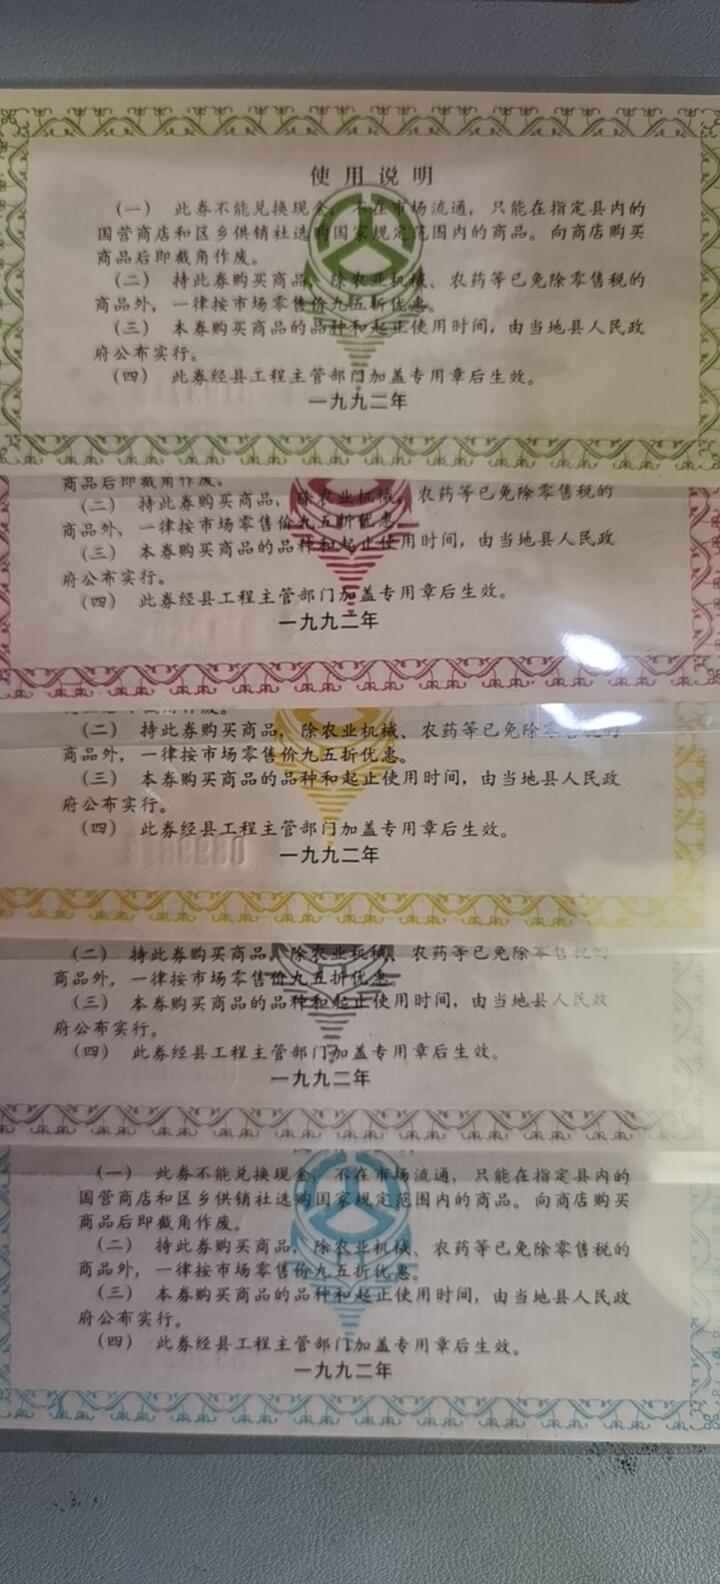 使用说明
(一) 此券不能兑换现金，不在市场流通，只能在指定县内的
国营商店和区乡供销社选购国家规定范围内的商品。向商店购买
商品后即截角作废。
(二) 持此券购买商品，除农业机械、农药等已免除零售税的
商品外，一律按市场零售价九五折优惠。
(三) 本券购买商品的品种和起止使用时间，由当地县人民政
府公布实行。
(四) 此券经县工程主管部门加盖专用章后生效。
一九九二年
商品后即截角作废。
(二) 持此券购买商品，除农业机械、农药等已免除零售税的
商品外，一律按市场零售价九五折优惠
(三) 本券购买商品的品种和起止使用时间，由当地县人民政
府公布实行。
(四) 此券经县工程主管部门加盖专用章后生效。
一九九二年
截角作废。
(二) 持此券购买商品，除农业机械、农药等已免除零售税的
商品外，一律按市场零售价九五折优惠。
(三) 本券购买商品的品种和起止使用时间，由当地县人民政
府公布实行。
(四) 此券经县工程主管部门加盖专用章后生效。
一九九二年
(二) 持此券购买商品，除农业机械、农药等已免除零售税的
商品外，一律按市场零售价九五折优惠。
(三) 本券购买商品的品种和起止使用时间，由当地县人民政
府公布实行。
(四) 此券经县工程主管部门加盖专用章后生效。
一九九二年
(一) 此券不能兑换现金，不在市场流通，只能在指定县内的
国营商店和区乡供销社选购国家规定范围内的商品。向商店购买
商品后即截角作废。
(二) 持此券购买商品，除农业机械、农药等已免除零售税的
商品外，一律按市场零售价九五折优惠。
(三) 本券购买商品的品种和起止使用时间，由当地县人民政
府公布实行。
(四) 此券经县工程主管部门加盖专用章后生效。
一九九二年